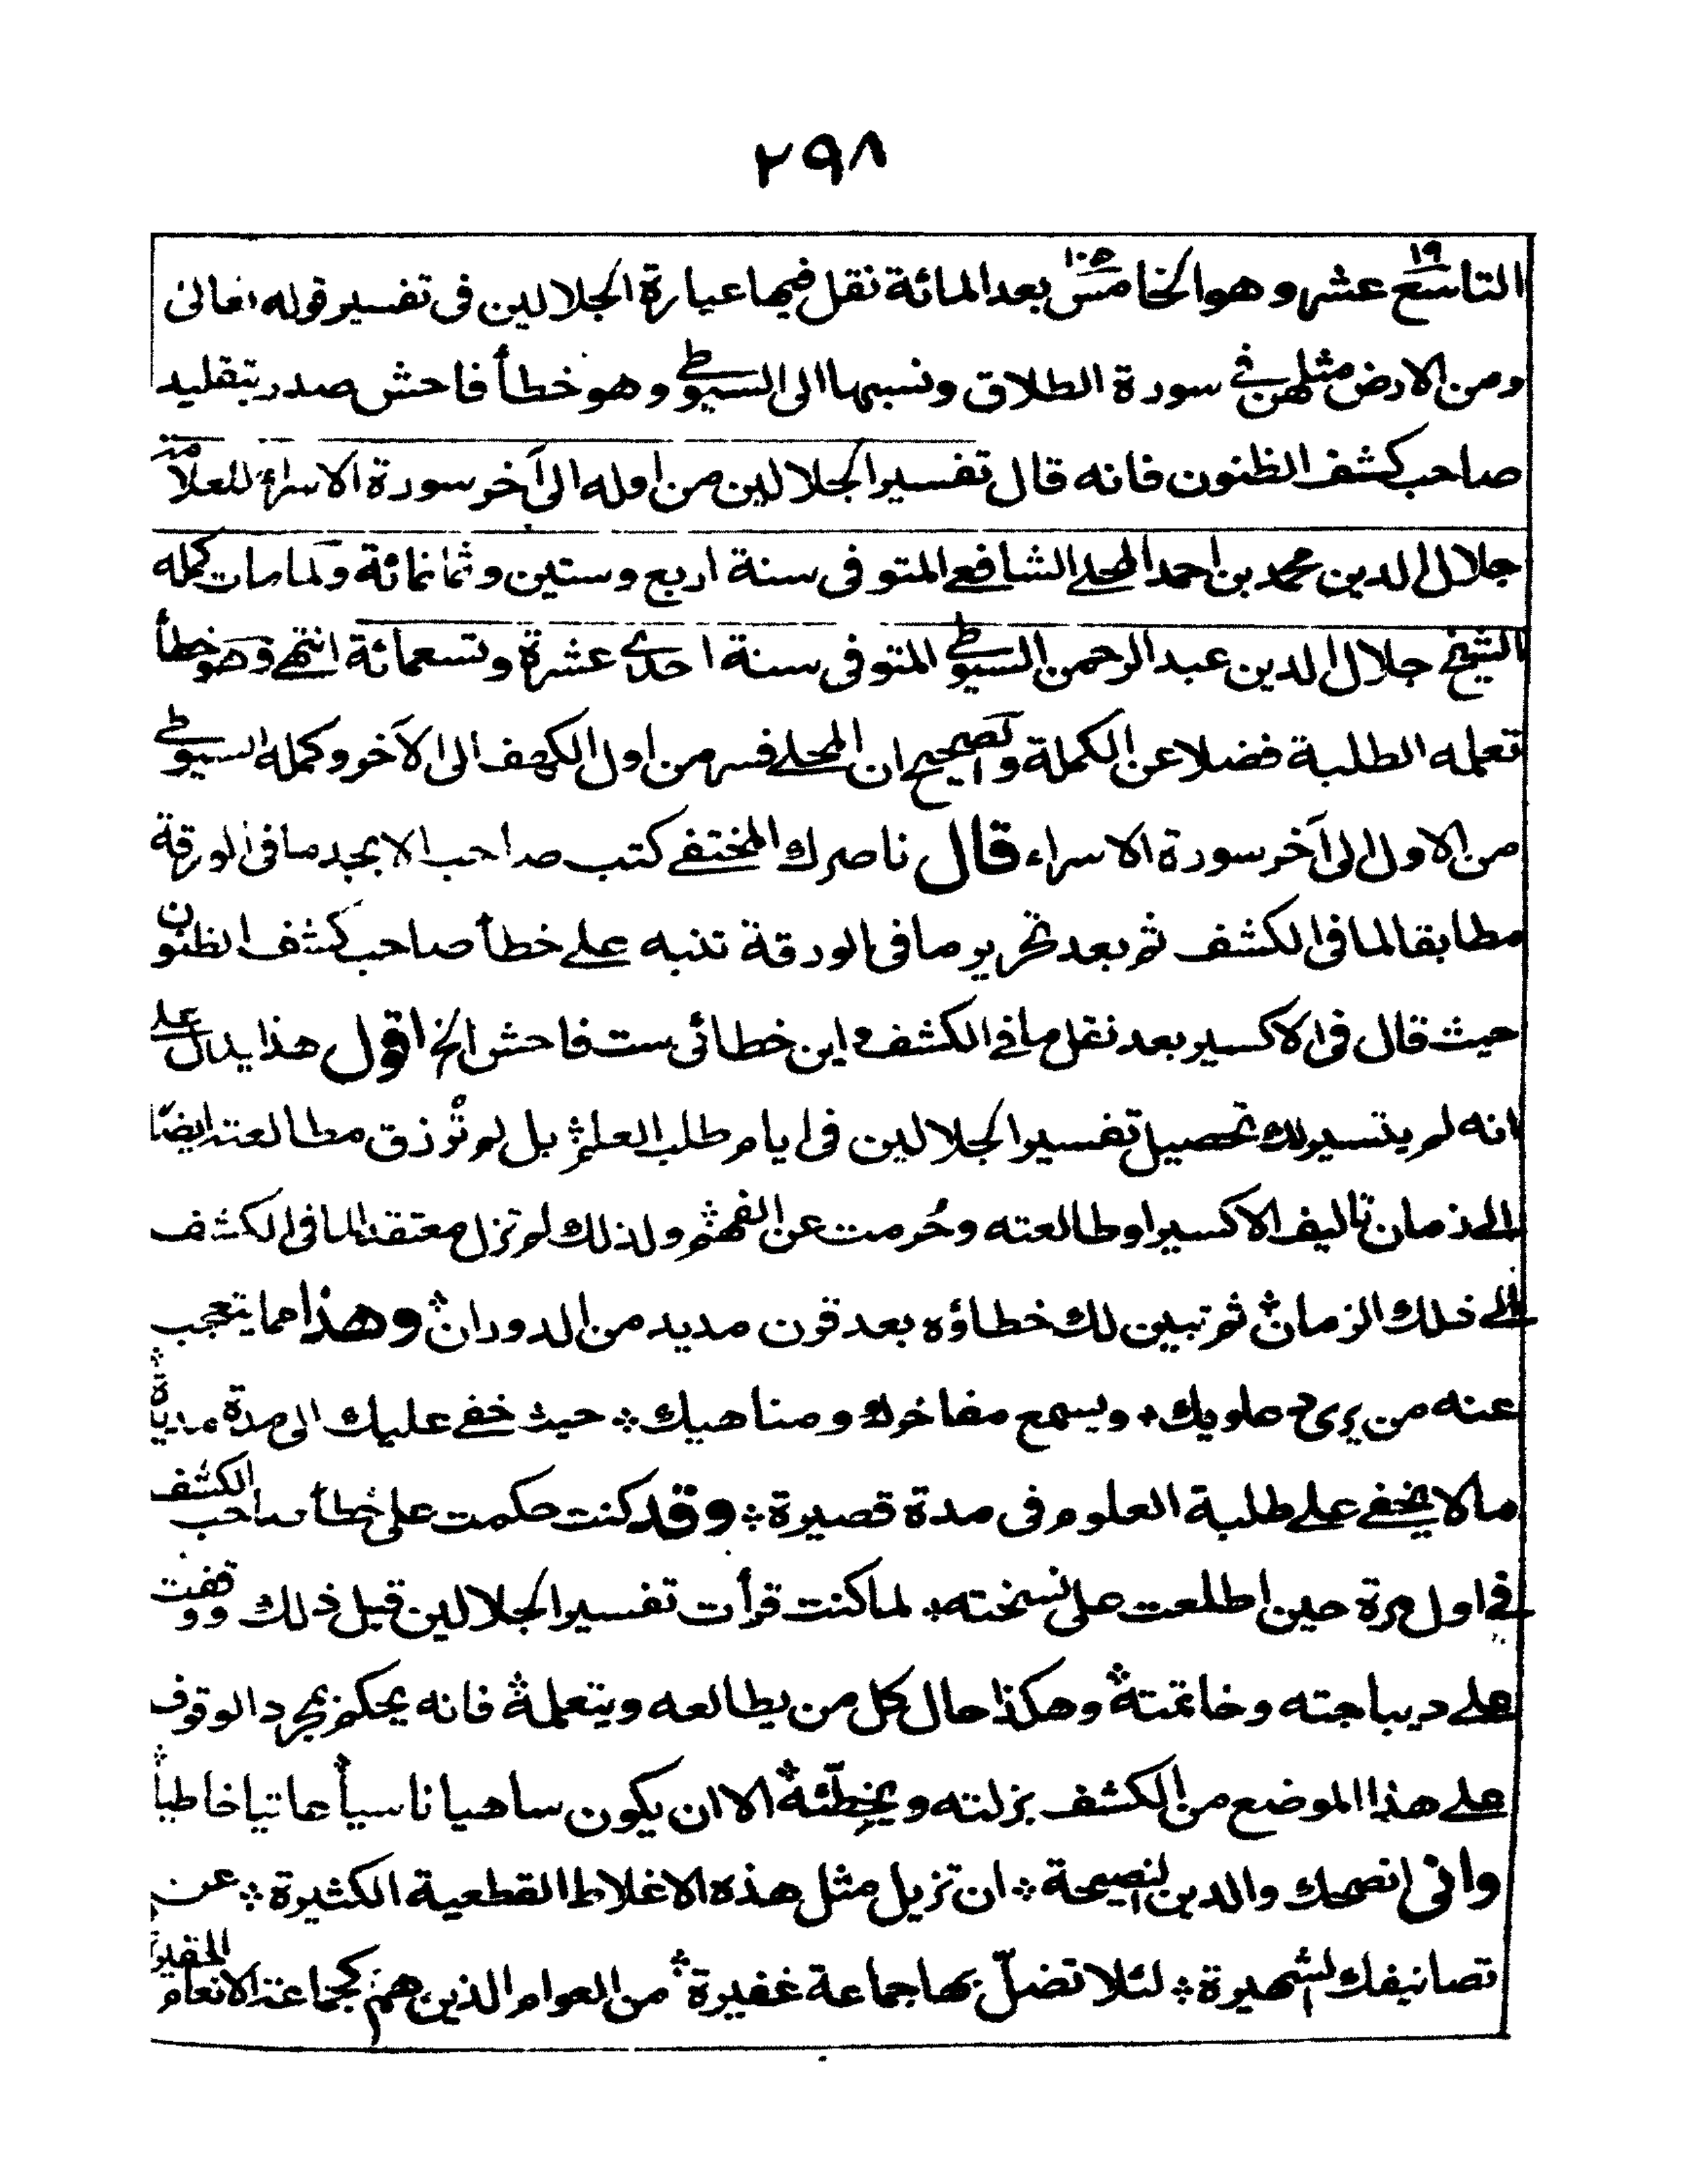 ٢٩٨
١٩ ١٠٥
التاسع عشر وهو الخامس بعد المائة نقل فيها عبارة الجلالين فى تفسير قوله تعالى
ومن الارض مثلهن في سورة الطلاق ونسبها الى السيوطے وهو خطأ فاحش صدر بتقليد
صاحب كشف الظنون فانه قال تفسير الجلالين من اوله الى آخر سورة الاسراء للعلامة
جلال الدين محمد بن احمد المحلے الشافعے المتوفى سنة اربع وستين وثمانمائة ولمامات كمله
الشيخ جلال الدين عبد الرحمن السيوطے المتوفى سنة احدى عشرة وتسعمائة انتهے وهو خطأ
تعلمه الطلبة فضلا عن الكملة والصحيح ان المحلے فسر من اول الكهف الى الآخر وكمله السيوطے
من الاول الى آخر سورة الاسراء قال ناصرك المختفے كتب صاحب الابجد ما فى الورقة
مطابقا لما فى الكشف ثم بعد تحرير ما فى الورقة تنبه علے خطأ صاحب كشف الظنون
حيث قال فى الاكسير بعد نقل ما في الكشف واين خطائى ست فاحش الخ اقول هذا يدل علے
انه لم يتسير لك تحصيل تفسير الجلالين فى ايام طلب العلم ؞ بل لم تُرزق مطالعته ايضًا
الے زمان تاليف الاكسير او طالعته وحُرمت عن الفهم ؞ ولذلك لم تزل معتقدا لما فى الكشف
الے ذلك الزمان ؞ ثم تبين لك خطاؤه بعد قرون مديد من الدوران ؞ وهذا مما يتعجب
عنه من يرى دعاويك ؞ ويسمع مفاخرك ومناهيك ؞ حيث خفے عليك الى مدة مديدة ؞
ما لا يخفے علے طلبة العلوم فى مدة قصيرة ؞ وقد كنت حكمت على خطأ صاحب الكشف
في اول مرة حين اطلعت على نسخته ؞ لما كنت قرأت تفسير الجلالين قبل ذلك ووقفت
علے ديباجته وخاتمته ؞ وهكذا حال كل من يطالعه ويتعلمه ؞ فانه يحكم بمجرد الوقوف
علے هذا الموضع من الكشف بزلته ويخطّئه ؞ الا ان يكون ساهيا ناسيأ عاتيا خاطيا ؞
وانى انصحك والدين النصيحة ؞ ان تزيل مثل هذه الاغلاط القطعية الكثيرة ؞ عن
تصانيفك الشهيرة ؞ لئلا تضلّ بها جماعة غفيرة ؞ من العوام الذين هم كجماعة الانعام